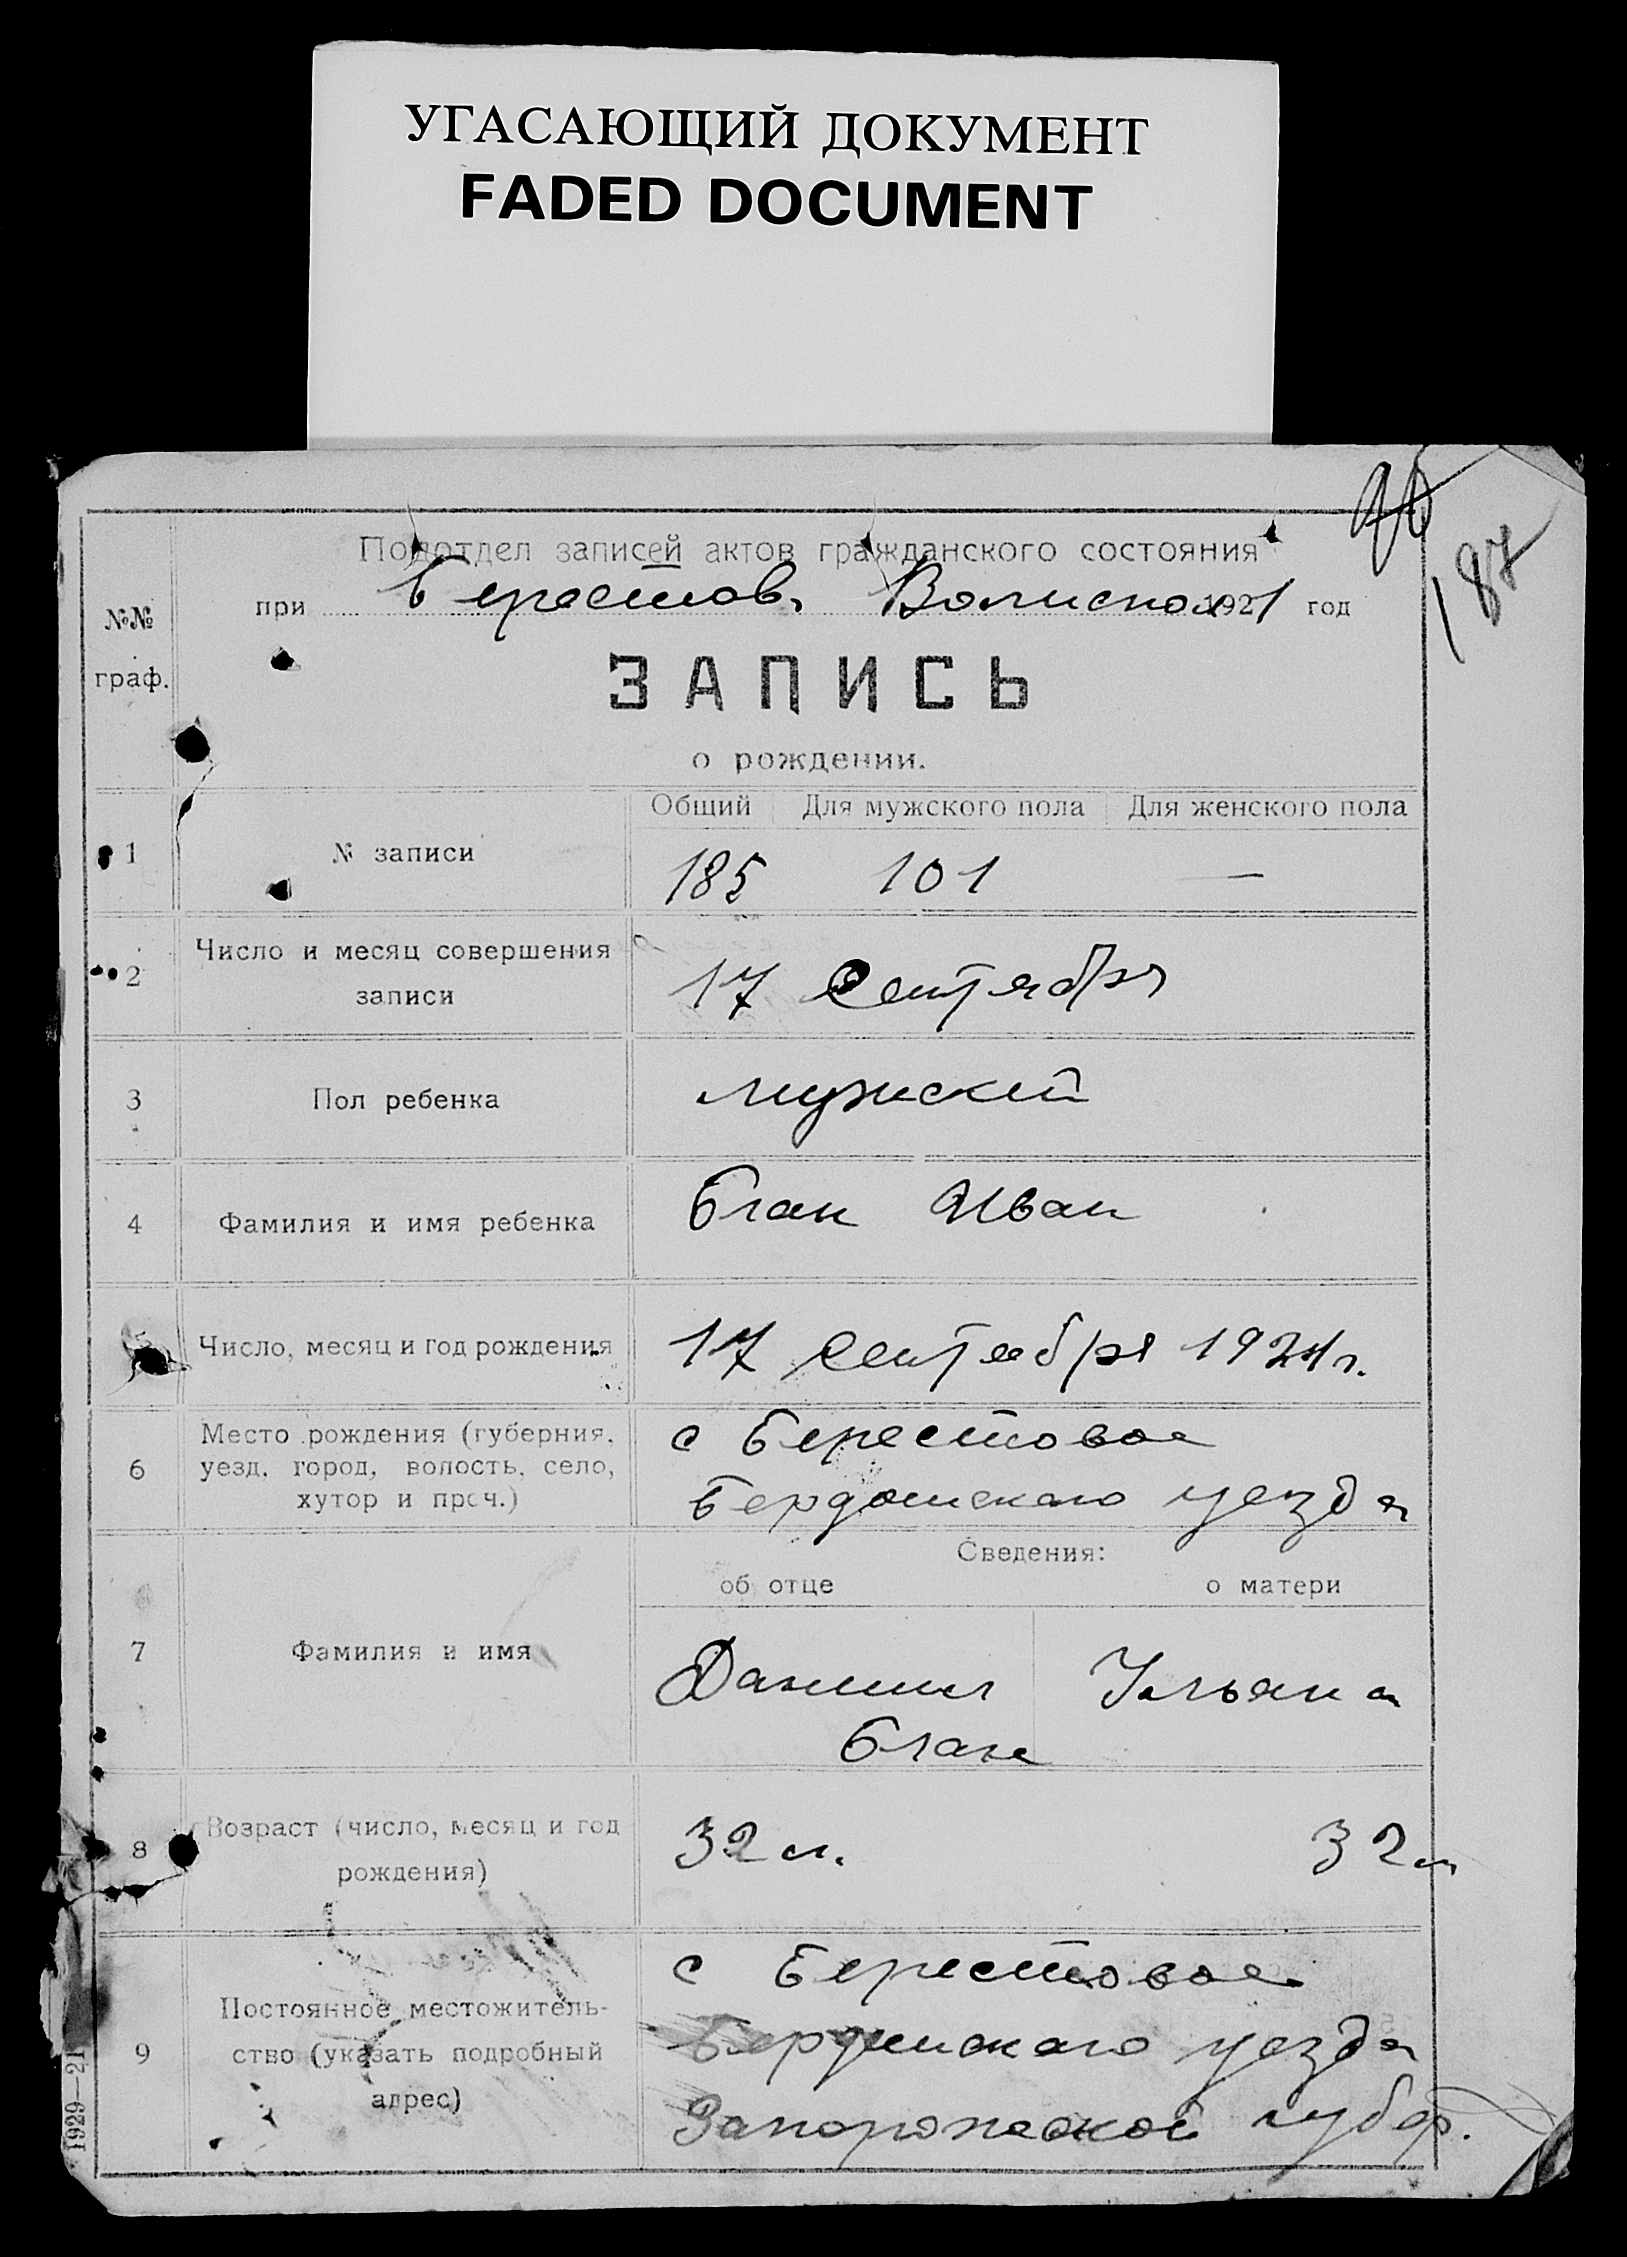 УГАСАЮЩИЙ ДОКУМЕНТ
FADED DOCUMENT
187
Подотдел записей актов гражданского состояния
при Берестов. Волиспол 1921 год
№№
граф.
ЗАПИСЬ
о рождении.
Общий Для мужского пола Для женского пола
1 № записи 185 101 —
2 Число и месяц совершения
записи
17 Сентября
3 Пол ребенка мужский
4 Фамилия и имя ребенка Блан Иван
5 Число, месяц и год рождения 17 Сентября 1921 г.
6 Место рождения (губерния,
уезд, город, волость, село,
хутор и проч.)
с Берестовое
Бердянскаго уезда
Сведения:
об отце о матери
7 Фамилия и имя
Даниил Ульяна
Блан
8 Возраст (число, месяц и год
рождения)
32 л. 32 л
9 Постоянное местожитель-
ство (указать подробный
адрес)
с Берестовое
Бердянскаго уезда
Запорожской губер.
1929—21